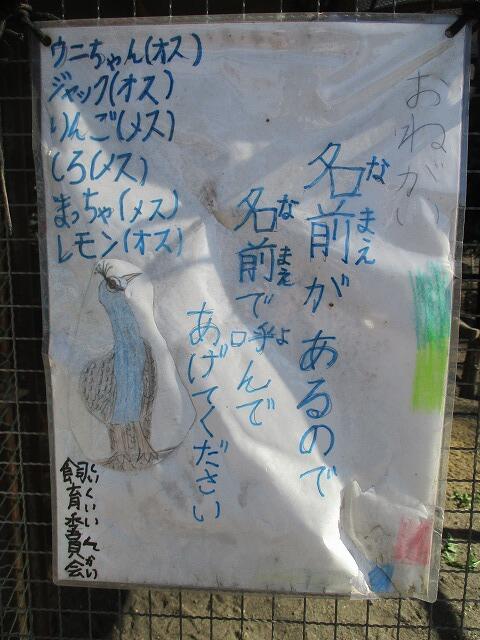 おねがい
名前があるので
なまえ
名前で呼んで
なまえ よ
あげてください
ウニちゃん(オス)
ジャック(オス)
りんご(メス)
しろ(メス)
まっちゃ(メス)
レモン(オス)
飼育委員会
しいくいいんかい